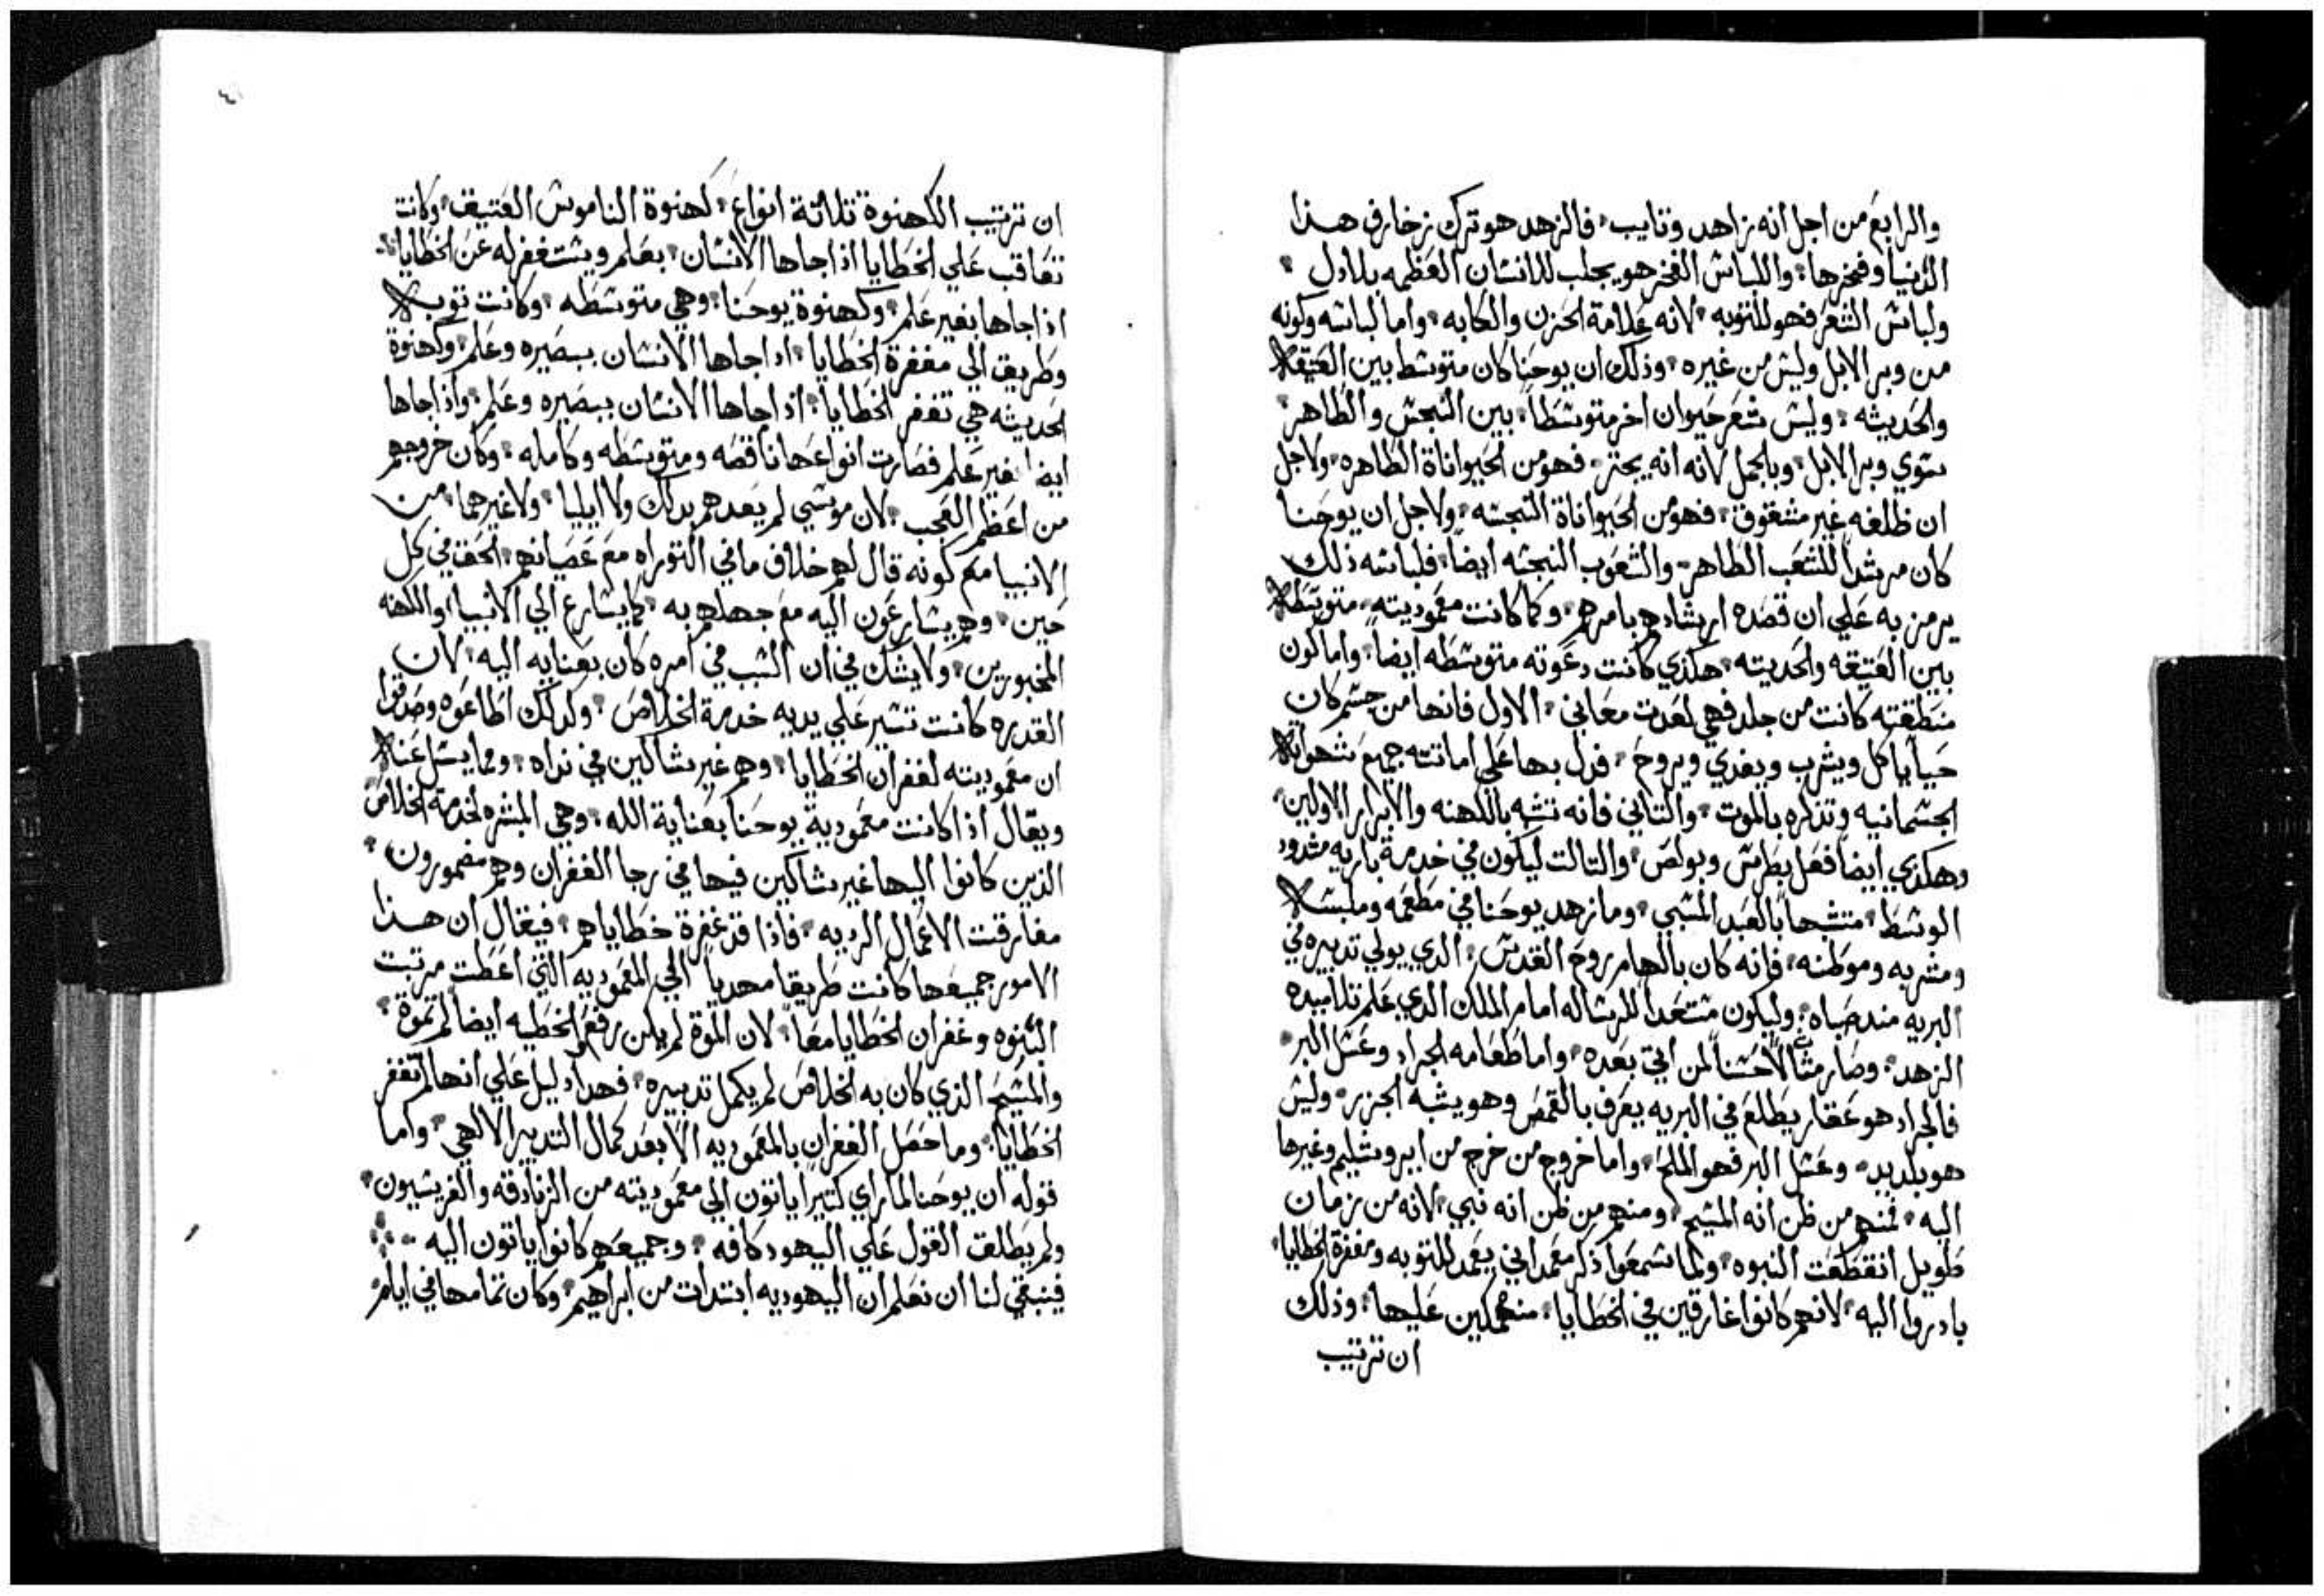 والرابع من اجل انه زاهد وتايب فالزهد هو ترك زخارف هذا
الدنيا وفخرها واللباس الفخر هو يجلب للانسان العظمه بلادل
ولباس الشعر فهو للتوبه لانه علامة الحزن والكابه واما لباسه وكونه
من وبر الابل وليس من غيره وذلك ان يوحنا كان متوسط بين العتيقه
والحديثه وليس شعر حيوان اخر متوسطاً بين النجس والطاهر
سوي وبر الابل وبالجمل لانه انه يجتر فهو من الحيواناة الطاهره ولاجل
ان ظلفه غير مشقوق فهو من الحيواناة النجسه ولاجل ان يوحنا
كان مرشداً للشعب الطاهر والشعوب النجسه ايضاً فلباسه ذلك
يرمز به علي ان قصده ارشادهم بامرهم وكما كانت معموديته متوسطه
بين العتيقه والحديثه هكذي كانت دعوته متوسطه ايضا واما كون
منطقته كانت من جلد فهي لعدت معاني الاول فانها من جسم كان
حياً ياكل ويشرب ويغدي ويروح فدل بها علي اماتته جميع شهواته
الجسمانيه وتذكره بالموت والتاني فانه تشبه باللهنه والابرار الاولين
وهكذي ايضاً فعل بطرس وبولص والتالت ليكون في خدمة باريه مشدود
الوسط متشبهاً بالعبد المسبي وما زهد يوحنا في مطعمه وملبسه
ومشربه وموطنه فانه كان بالهام روح القدس الدي يولي تدبيره في
البريه مند صباه وليكون مستعداً للرساله امام الملك الدي علم تلاميده
الزهد وصار مثالاً حسناً لمن اتي بعده واما طعامه الجراد وعسل البر
فالجراد هو عقار يطلع في البريه يعرف بالقمص وهو يشبه الجزر وليس
هو بلديد وعسل البر فهو الملح واما خروج من خرج من ايروشليم وغيرها
اليه فمنهم من ظن انه المسيح ومنهم من ظن انه نبي لانه من زمان
طويل انقطعت النبوه ولما سمعوا ذكر معمداني يعمد للتوبه ومغفرة الخطايا
بادروا اليه لانهم كانوا غارقين في الخطايا منهمكين عليها وذلك
ان ترتيب
ان ترتيب الكهنوة تلاتة انواع كهنوة الناموس العتيق وكانت
تعاقب علي الخطايا اذا جاها الانسان بعلم ويستغفر له عن الخطايا
اذا جاها بغير علم وكهنوة يوحنا وهي متوسطه وكانت توبه
وطريق الي مغفرة الخطايا اداجاها الانسان ببصيره وعلم وكهنوة
الحديثه هي تغفر الخطايا اذا جاها الانسان ببصيره وعلم واذا جاها
ايضا بغير علم فصارت انواعها ناقصه ومتوسطه وكامله وكان خروجهم
من اعظم العجب لان موسي لم يعدهم بدلك ولا ايليا ولا غيرهما من
الانبيا مع كونه قال لهم خلاف ما في التوراه مع عصيانهم الحق في كل
حين وهم يسارعون اليه مع جهلهم به كما يسارع الي الانبيا واللهنه
المخبورين ولا يشك في ان السبب في امره كان بعنايه اليه لان
القدره كانت تشير علي يديه خدمة الخلاص ولدلك اطاعوه وصدقوا
ان معموديته لغفران الخطايا وهم غير شاكين في نداه ومما يسل عنه
ويقال اذا كانت معمودية يوحنا بعناية الله وهي المبشره لخدمة الخلاص
الذين كانوا اليها غير شاكين فيها في رجا الغفران وهم مضمورون
مفارقت الاعمال الرديه فاذا قد غفرة خطاياهم فيقال ان هذا
الامور جميعها كانت طريقاً محدياً الي المعموديه التي اعطت مرتبت
البنوه وغفران الخطايا معاً لان الموة لم يكن رفع والخطيه ايضاً لم تموة
والمسيح الذي كان به الخلاص لم يكمل تدبيره فهدا دليل علي انها لم تغفر
الخطايا وما حصل الغفران بالمعموديه الا بعد كمال التدبير الالهي واما
قوله ان يوحنا لما راي كتيراً ياتون الي معموديته من الزنادقه والفريسيون
ولم يطلق القول علي اليهود كافه وجميعهم كانوا ياتون اليه
فينبغي لنا ان نعلم ان اليهوديه ابتدات من ابراهيم وكان تمامها في ايام